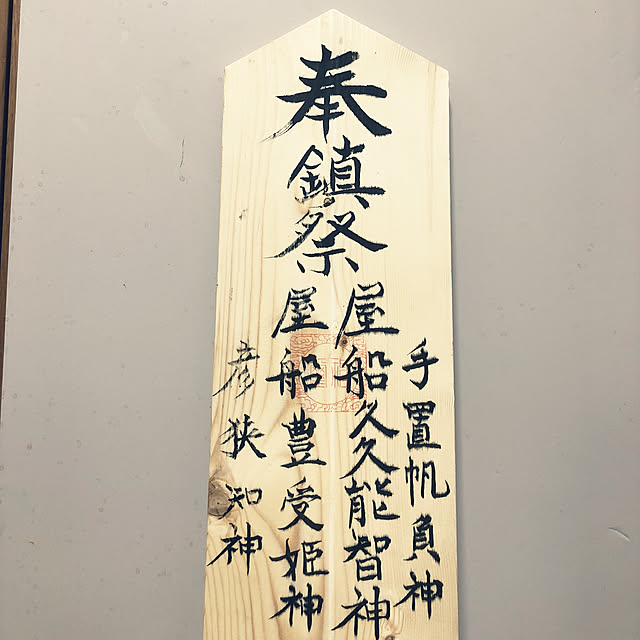 奉鎮祭
手置帆負神
屋船久久能智神
屋船豊受姫神
彦狭知神